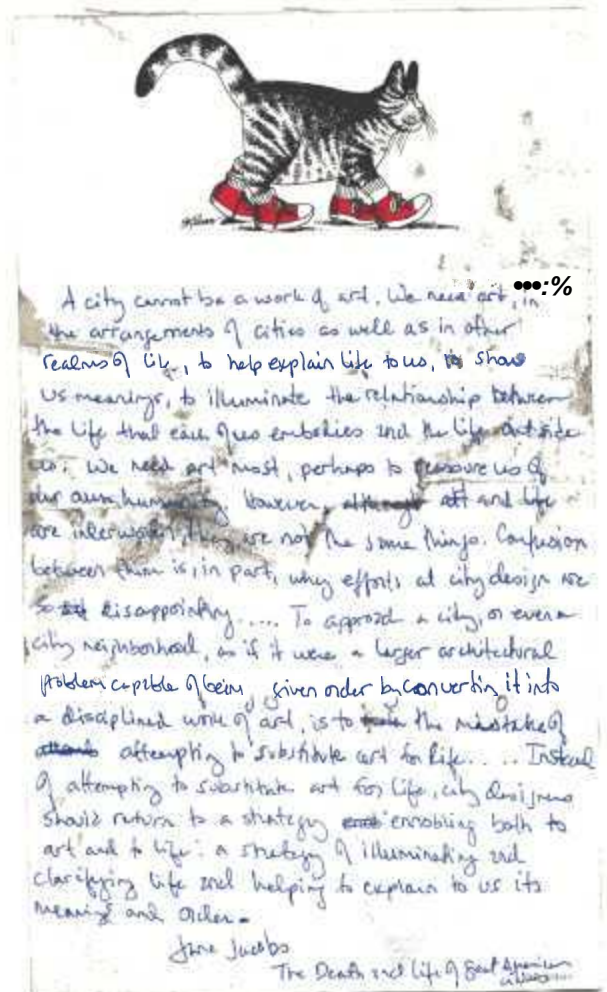 •••:%
A city cannot be a work of art. We need art, in
the arrangements of cities as well as in other
realms of life, to help explain life to us, to show
us meanings, to illuminate the relationship between
the life that each of us embodies and the life outside
us. We need art most, perhaps to reassure us of
our own humanity however, although art and life
are interwoven, they are not the same things. Confusion
between them is, in part, why efforts at city design are
so disappointing..... To approach a city, or even a
city neighborhood, as if it were a larger architectural
problem capable of being given order by converting it into
a disciplined work of art, is to make the mistake of
attempting to substitute art for life.... Instead
of attempting to substitute art for life, city designers
should return to a strategy ennobling both to
art and to life: a strategy of illuminating and
clarifying life and helping to explain to us its
meanings and order.
Jane Jacobs
The Death and Life of Great American
Cities